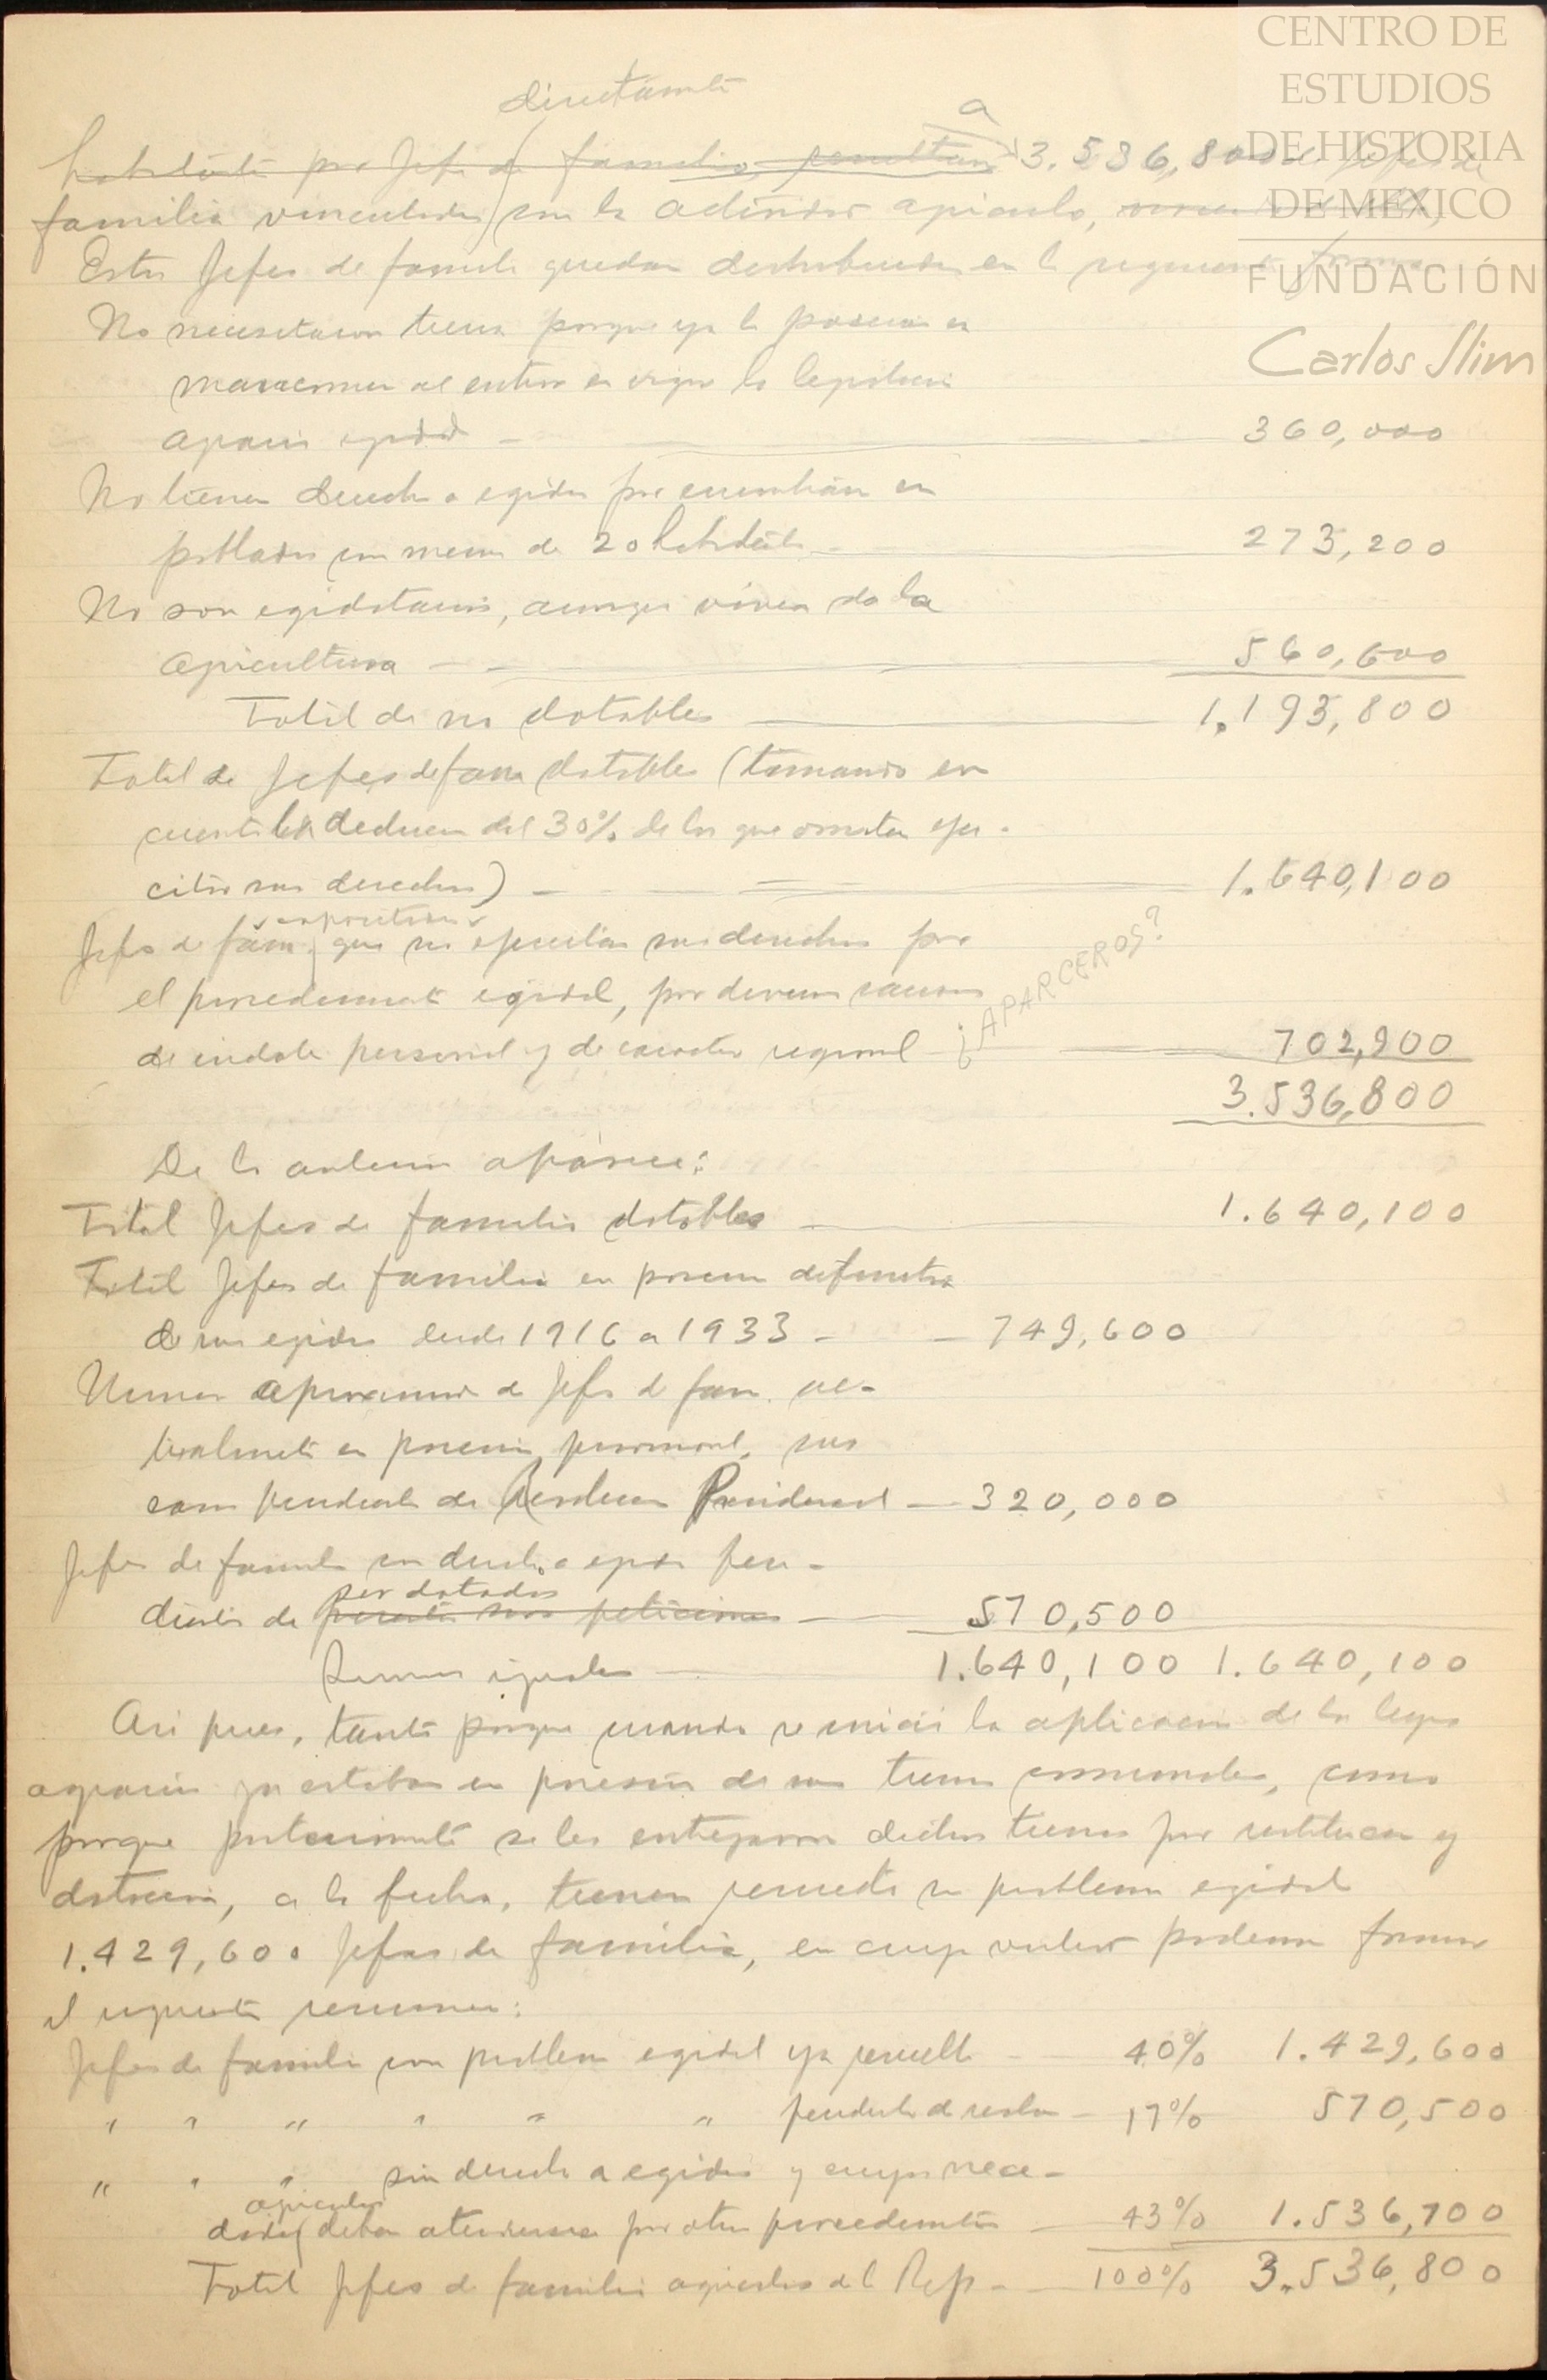 CENTRO DE
ESTUDIOS
DE HISTORIA
DE MEXICO
FUNDACIÓN
Carlos Slim
directamte
a
habitante por Jefe de familia, resultan 3.536,800 Jefes de
familia vinculados con la actividad agricola,
Estos Jefes de famila quedan distribuidos en la siguiente forma
No necesitaron tierra porque ya la poseian en
mancomun al entrar en vigor la legislacion
agraria egidal — 360,000
No tienen derecho a egidos por encontrarse en
poblados con menos de 20 habitantes — 273,200
No son egidatarios, aunque viven de la
agricultura — 560,600
Total de no dotables — 1.193,800
Total de Jefes de fam dotables (tomando en
cuenta la deduccion del 30% de los que omiten ejer-
citar sus derechos) — 1.640,100
capacitados
Jefes de fam. que no ejercitan sus derechos por
el procedimiento egidal, por diversas causas
de indole personal y de caracter regional — 702,900
¿APARCEROS?
3.536,800
De lo anterior aparece:
Total Jefes de familia dotables — 1.640,100
Total Jefes de familia en posesion definitiva
de sus egidos desde 1916 a 1933 — 749,600
Numero aproximado de Jefes de fam. ac-
tualmente en posesion provisional, sus
casos pendientes de Resolucion Presidencial — 320,000
Jefes de familia con derecho a egidos pen-
ser dotados
dientes de presentar sus peticiones — 570,500
Sumas iguales — 1.640,100 1.640,100
Asi pues, tanto porque cuando se inició la aplicacion de las leyes
agrarias ya estaban en posesion de sus tierras comunales, como
porque posteriormente se les entregaron dichas tierras por restitucion y
dotacion, a la fecha, tienen resuelto su problema egidal
1.429,600 Jefes de familia, en cuya virtud podemos formar
el siguiente resumen:
Jefes de familia con problema egidal ya resuelto — 40% 1.429,600
" " " " " " pendiente de resolver — 17% 570,500
" " " sin derecho a egidos y cuyas nece-
agricolas
dades deben atenderse por otros procedimientos — 43% 1.536,700
Total Jefes de familia agricolas de la Rep. — 100% 3.536,800